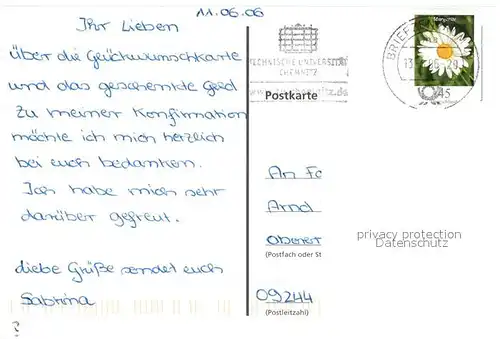 11.06.06
Ihr Lieben
über die Glückwunschkarte
und das geschenkte Geld
zu meiner Konfirmation
möchte ich mich herzlich
bei euch bedanken.
Ich habe mich sehr
darüber gefreut.
Liebe Grüße sendet euch
Sabrina
TECHNISCHE UNIVERSITÄT
CHEMNITZ
BRIEF
Margerite
45
Postkarte
An Fa
Arnd
Oberer
(Postfach oder St
09244
(Postleitzahl)
privacy protection
Datenschutz